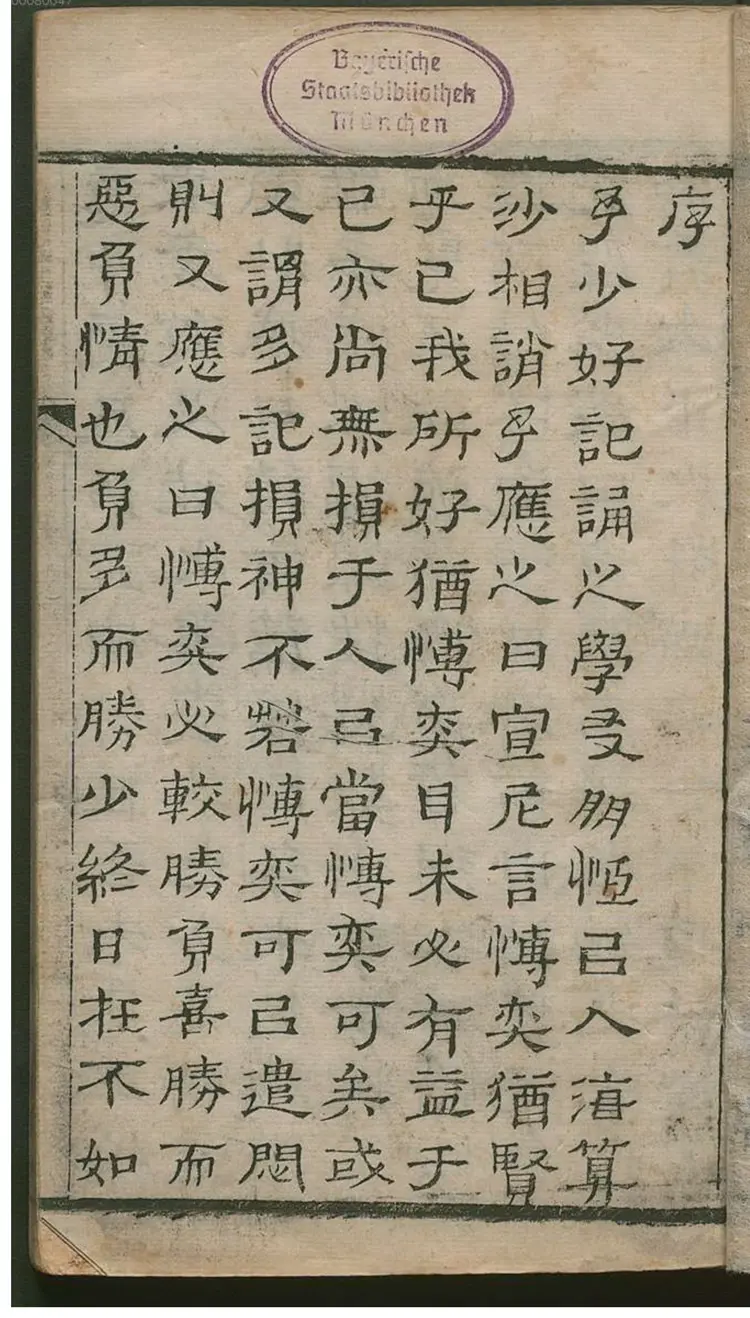 00080047
Bayerische
Staatsbibliothek
München
序
予少好記誦之學友朋恆㠯入海算
沙相誚予應之曰宣尼言愽奕猶賢
乎已我所好猶愽奕目未必有益于
已亦尚無損于人㠯當愽奕可矣或
又謂多記損神不若愽奕可㠯遣悶
則又應之曰愽奕必較勝負喜勝而
惡負情也負多而勝少終日抂不如